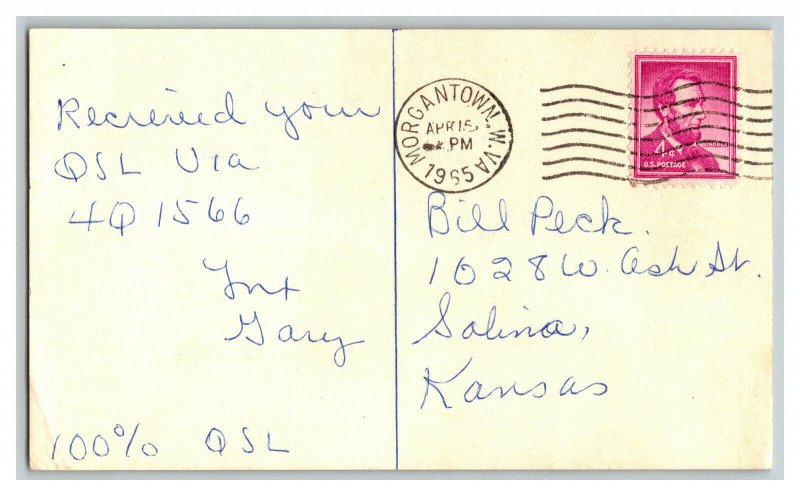 Recieved your
QSL Via
4Q1566
Tnx
Gary
100% QSL
MORGANTOWN, W. VA
APR 15
PM
1965
4¢
LINCOLN
U.S. POSTAGE
Bill Peck.
1028 W. Ash St.
Salina,
Kansas